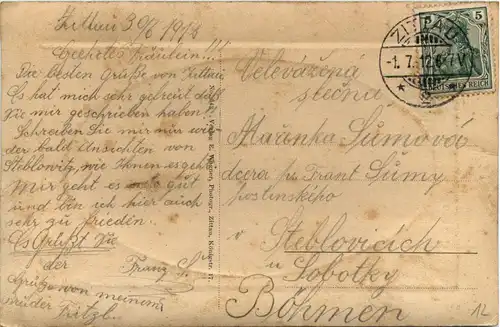 Zittau 30/6 1912
Geehrtes Fräulein!!!
Die besten Grüße von Zittau
Es hat mich sehr gefreut daß
Sie mir geschrieben haben!
Schreiben Sie mir mir wie
der bald Ansichten von
Steblowitz, wie Ihnen es geht
Mir geht es gut
und bin ich hier auch
sehr zu frieden.
Es Grüßt Sie
der Franz S.
Grüße von meinem
Bruder Fritzl.
Verlag E. Wagner, Photogr., Zittau, Königstr. 17.
Velevážená
slečna
Mařenka Šůmová
dcera p. Frant Šůmy
hostinského
v
Steblovicích
u Sobotky
Böhmen
ZITTAU
-1.7.12.6-7V.
* 2 *
5
DEUTSCHES REICH
12